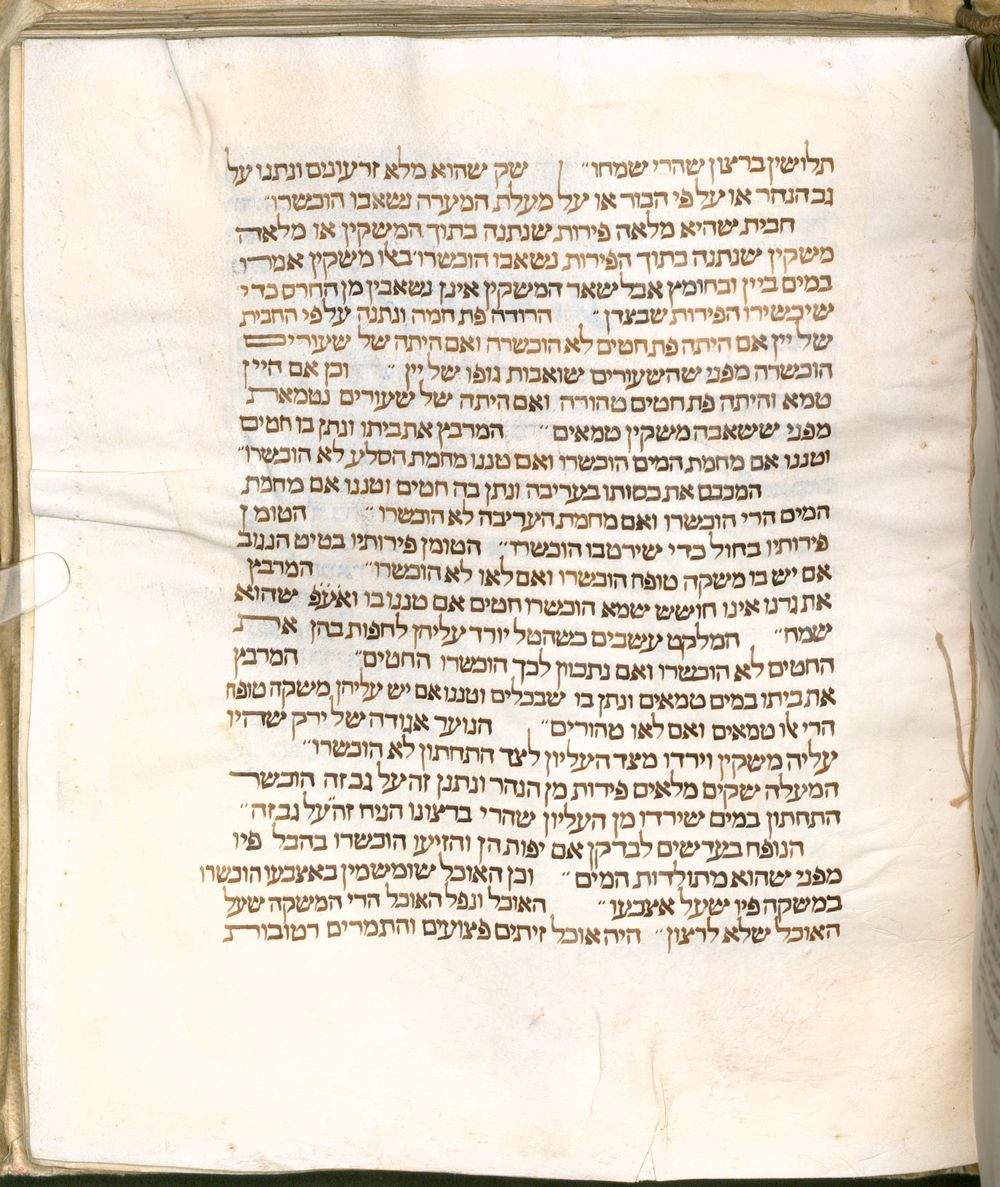 תלושין ברצון שהרי שמחו״ שק שהוא מלא זרעונים ונתנו על
גב הנהר או על פי הבור או על מעלת המערה נשאבו הוכשרו״
חבית שהיא מלאה פירות שנתנה בתוך המשקין או מלאה
משקין שנתנה בתוך הפירות נשאבו הוכשרו באלו משקין אמרו
במים ביין ובחומץ אבל שאר המשקין אינן נשאבין מן החרס כדי
שיכשירו הפירות שבצדן״ הרודה פת חמה ונתנה על פי החבית
של יין אם היתה פת חטים לא הוכשרה ואם היתה של שעורים
הוכשרה מפני שהשעורים שואבות גופו של יין״ וכן אם היין
טמא והיתה פת חטים טהורה ואם היתה של שעורים נטמאת
מפני ששאבה משקין טמאים״ המרבץ את ביתו ונתן בו חטים
וטננו אם מחמת המים הוכשרו ואם טננו מחמת הסלע לא הוכשרו״
המכבס את כסותו בעריבה ונתן בה חטים וטננו אם מחמת
המים הרי הוכשרו ואם מחמת העריבה לא הוכשרו״ הטומן
פירותיו בחול כדי שירטבו הוכשרו״ הטומן פירותיו בטיט הנגוב
אם יש בו משקה טופח הוכשרו ואם לאו לא הוכשרו״ המרבץ
את גרנו אינו חושש שמא הוכשרו חטים אם טננו בו ואע״פ שהוא
שמח״ המלקט עשבים כשהטל יורד עליהן לחפות בהן את
החטים לא הוכשרו ואם נתכוון לכך הוכשרו החטים״ המרבץ
את ביתו במים טמאים ונתן בו שבכלים וטננו אם יש עליהן משקה טופח
הרי אלו טמאים ואם לאו טהורים״ הנוער אגודה של ירק שהיו
עליה משקין וירדו מצד העליון לצד התחתון לא הוכשרו״
המעלה שקים מלאים פירות מן הנהר ונתנן זה על גב זה הוכשר
התחתון במים שירדו מן העליון שהרי ברצונו הניח זה על גב זה״
הנופח בעדשים לבדקן אם יפות הן והזיעו הוכשרו בהבל פיו
מפני שהוא מתולדות המים״ וכן האוכל שומשמין באצבעו הוכשרו
במשקה פיו שעל אצבעו״ האוכל ונפל האוכל הרי המשקה שעל
האוכל שלא לרצון״ היה אוכל זיתים פצועים והתמרים רטובות